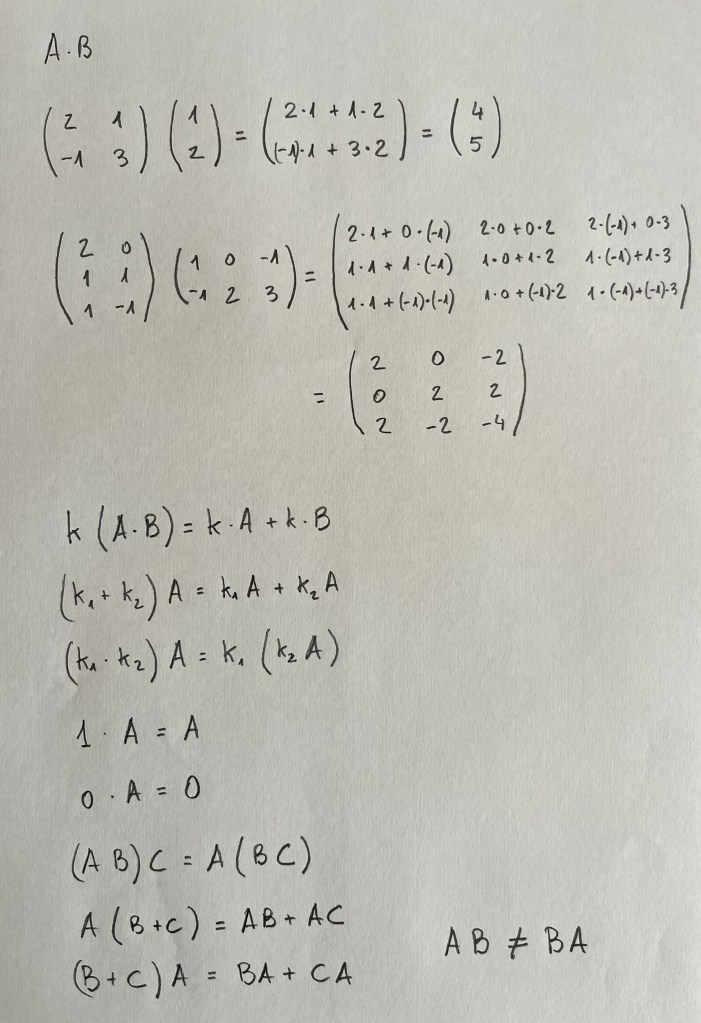 A·B
( 2 1 ; -1 3 ) ( 1 ; 2 ) = ( 2·1 + 1·2 ; (-1)·1 + 3·2 ) = ( 4 ; 5 )
( 2 0 ; 1 1 ; 1 -1 ) ( 1 0 -1 ; -1 2 3 ) = ( 2·1 + 0·(-1) 2·0 + 0·2 2·(-1) + 0·3 ; 1·1 + 1·(-1) 1·0 + 1·2 1·(-1) + 1·3 ; 1·1 + (-1)·(-1) 1·0 + (-1)·2 1·(-1) + (-1)·3 )
= ( 2 0 -2 ; 0 2 2 ; 2 -2 -4 )
k (A·B) = k·A + k·B
(k₁ + k₂) A = k₁ A + k₂ A
(k₁ · k₂) A = k₁ (k₂ A)
1 · A = A
0 · A = 0
(A B) C = A (B C)
A (B + C) = AB + AC
(B + C) A = BA + CA
A B ≠ B A